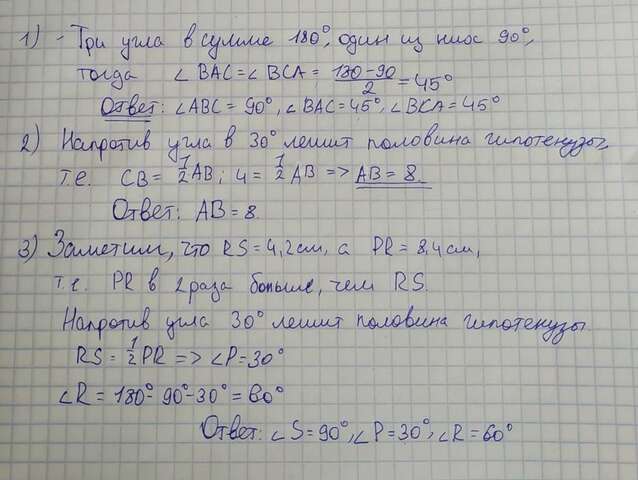 1) - Три угла в сумме 180°, один из них 90°,
тогда ∠BAC = ∠BCA = (180-90)/2 = 45°
Ответ: ∠ABC = 90°, ∠BAC = 45°, ∠BCA = 45°
2) Напротив угла в 30° лежит половина гипотенузы,
т.е. CB = 1/2 AB; 4 = 1/2 AB => AB = 8.
Ответ: AB = 8.
3) Заметим, что RS = 4,2 см, а PR = 8,4 см,
т.е. PR в 2 раза больше, чем RS.
Напротив угла 30° лежит половина гипотенузы.
RS = 1/2 PR => ∠P = 30°
∠R = 180° - 90° - 30° = 60°
Ответ: ∠S = 90°, ∠P = 30°, ∠R = 60°